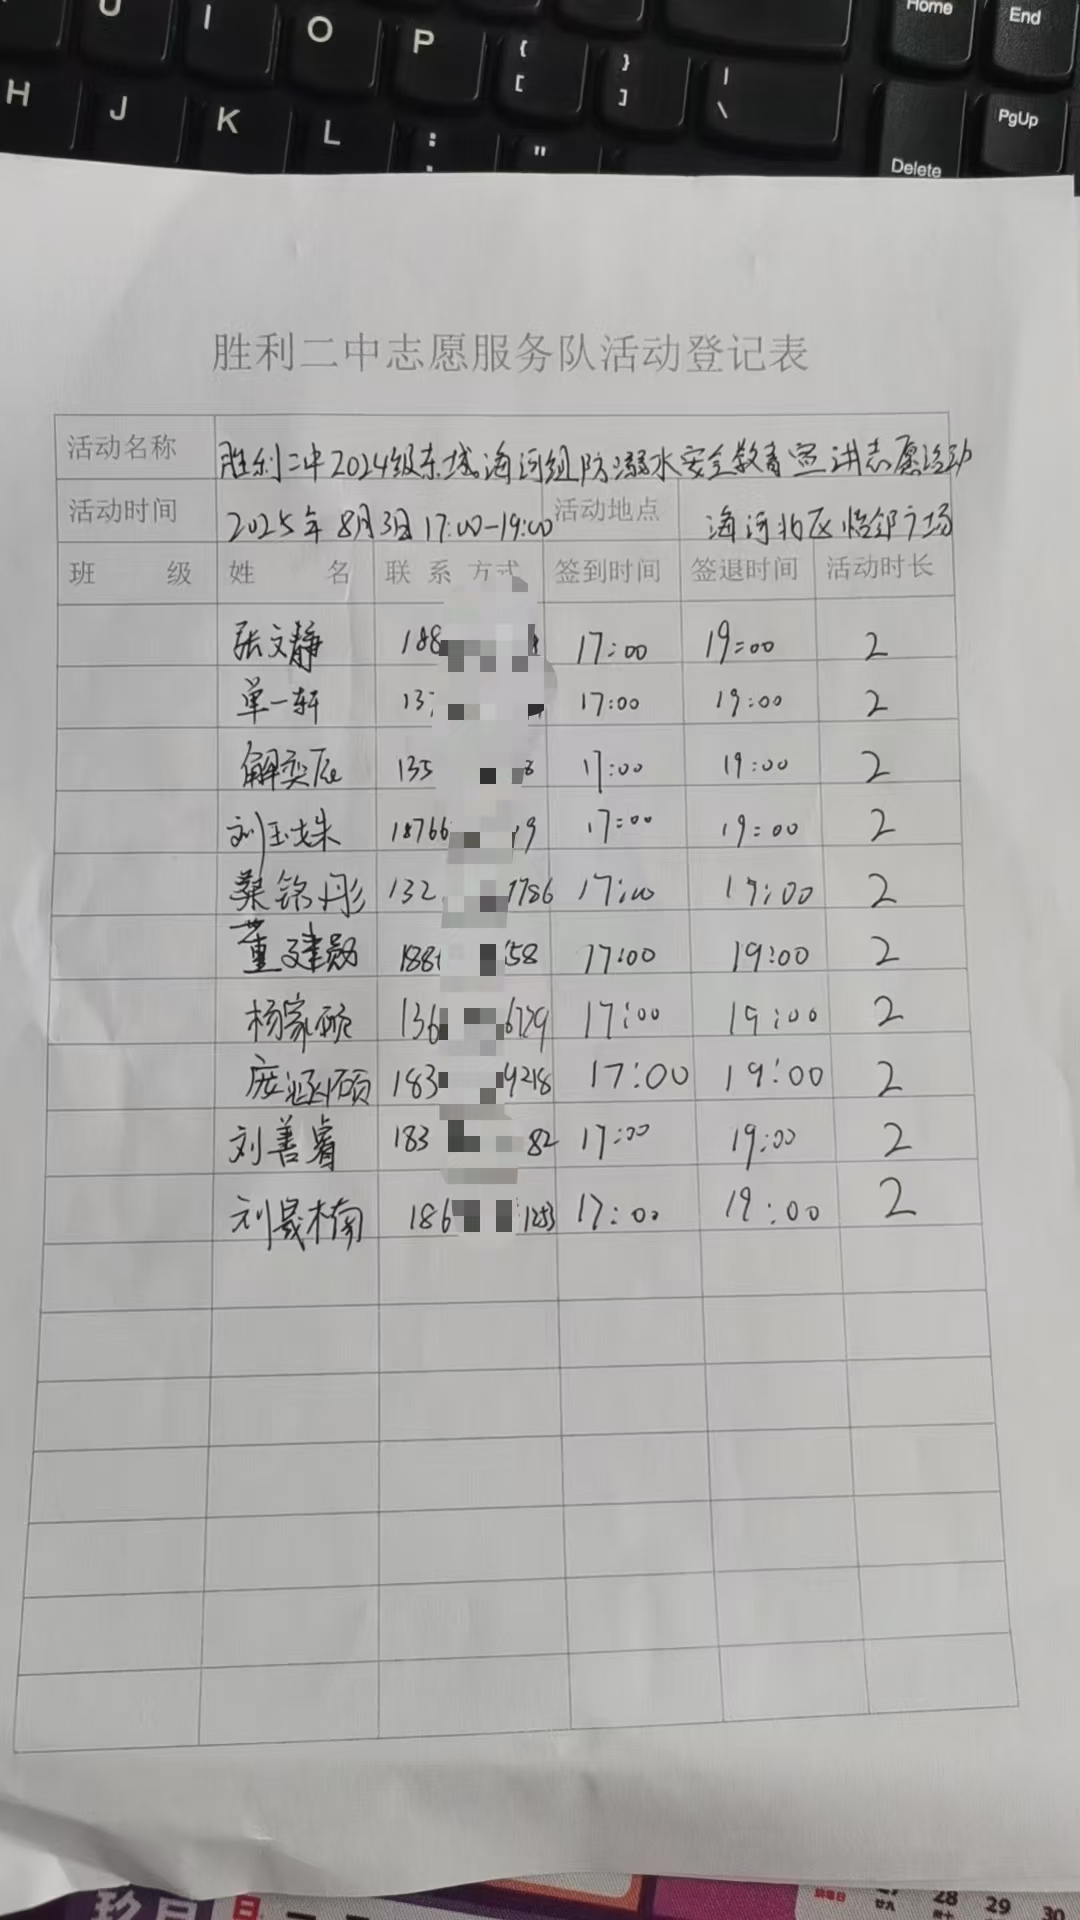 U I O P { [ } ] | \ Home End
H J K L : ; " Delete PgUp
胜利二中志愿服务队活动登记表
活动名称 胜利二中2024级东城海河组防溺水安全教育宣讲志愿活动
活动时间 2025年8月3日17:00-19:00 活动地点 海河北区 邻广场
班 级 姓 名 联 系 方式 签到时间 签退时间 活动时长
张文静 188 17:00 19:00 2
单一轩 137 17:00 19:00 2
解奕辰 135 8 17:00 19:00 2
刘玉姝 18766 19 17:00 19:00 2
桑铭彤 132 1786 17:00 17:00 2
董建勋 188 58 17:00 19:00 2
杨家硕 136 6729 17:00 19:00 2
庞涵硕 183 4218 17:00 19:00 2
刘善睿 183 82 17:00 19:00 2
刘晟楠 186 1253 17:00 19:00 2
玖月 日 一 28 29 30
廿八